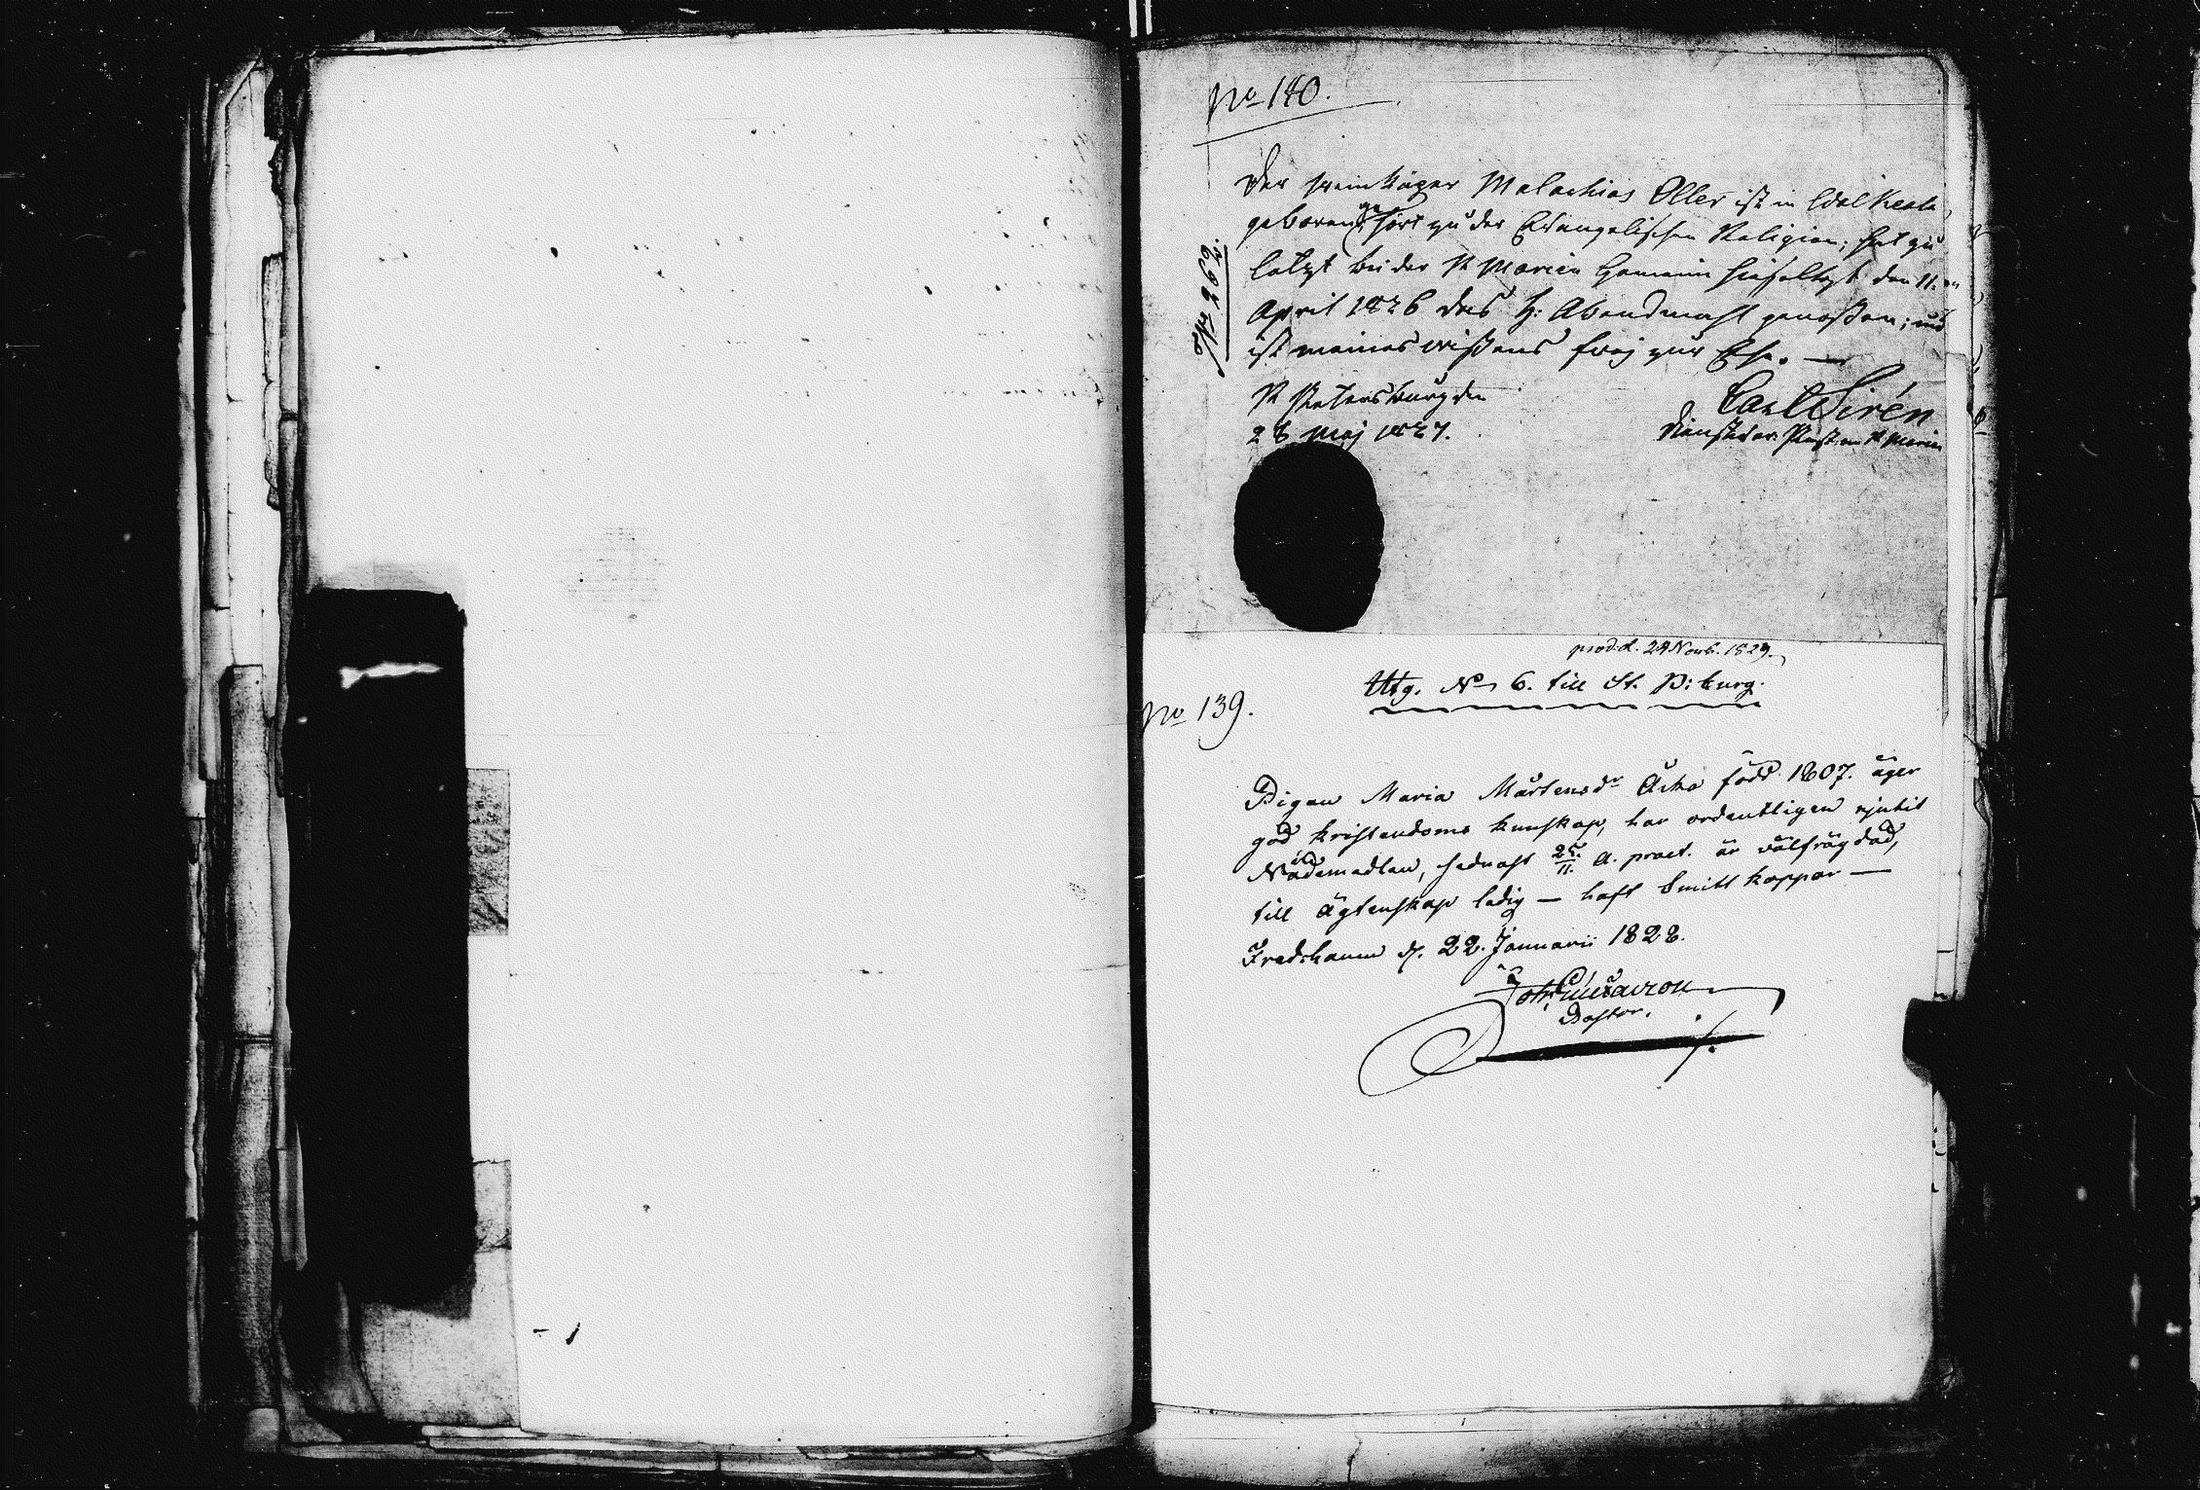 No 140.
No 262.
Der Malachias Oller ist in
geboren, gehört zu der Evangelischen Religion; hat zu
letzt bei der St Marien Gemeine hieselbst den 11.
April 1826 das H: Abendmahl genoßen; und
ist meines wißens frey zur Ehe. —
St Petersburg den
28 May 1827.
Carl Sirén
St Marien
prod. d. 24 Novb. 1829.
Utg. No 6. till St. P:burg.
No 139.
Pigan Maria Mårtensdr född 1807. äger
god kristendoms kunskap, har ordentligen njutit
Nådemedlen, sednast 25/11. a. praet. är välfrägdad,
till ägtenskap ledig — haft Smittkoppor —
Fredshamn d. 22. Januarii 1828.
Joh.
Pastor.